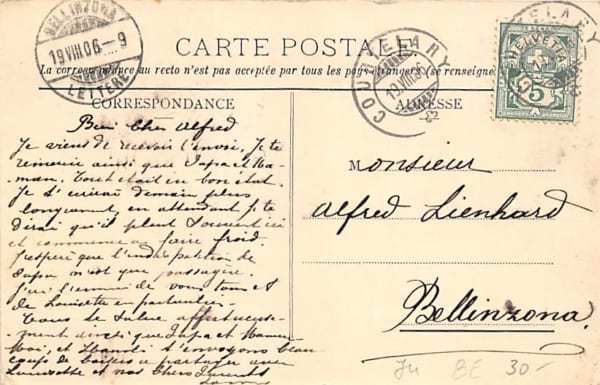 BELLINZONA
19 VIII 06.–9
LETTERE
CARTE POSTALE
La correspondance au recto n'est pas acceptée par tous les pays étrangers (se renseigner
COURTELARY
19.VIII.06
COURTELARY
HELVETIA
5
CORRESPONDANCE
ADRESSE
Bien Cher Alfred
Je viens de recevoir l'envoi, Je te
remercie ainsi que Papa et Ma-
man. Tout était en bon état.
Je t'écrirai demain plus
longuement, en attendant Je te
dirai qu'il pleut souvent ici
et commence au faire froid.
J'espère que l'indisposition de
Papa n'est que passagère.
J'ai l'ennui de vous tous et
de Louisette en particulier.
Tous te salue affectueuse-
ment ainsi que Papa et Maman
Moi, et t'envoyons beau
coup de baisers a partager avec
Louisette et nos chers
Monsieur
Alfred Lienhard
Bellinzona.
Ju BE 30-